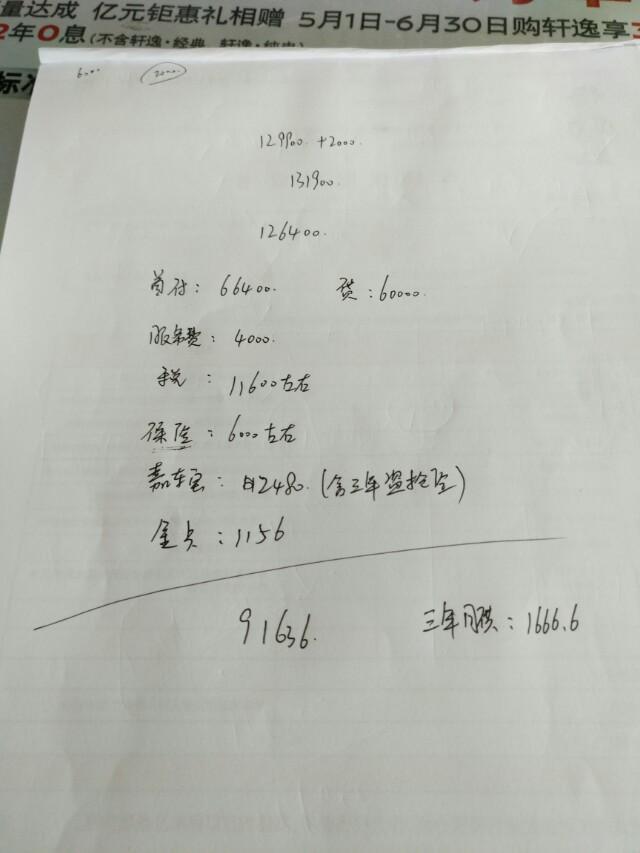 量达成 亿元钜惠礼相赠 5月1日-6月30日购轩逸享
2年0息(不含轩逸·经典
标准
6000 2000
129900. +2000.
131900.
126400.
首付: 66400. 贷:60000.
服务费: 4000.
税: 11600左右
保险: 6000左右
嘉车宝: 2480. (含三年盗抢险)
金点:1156
91636. 三年月供:1666.6